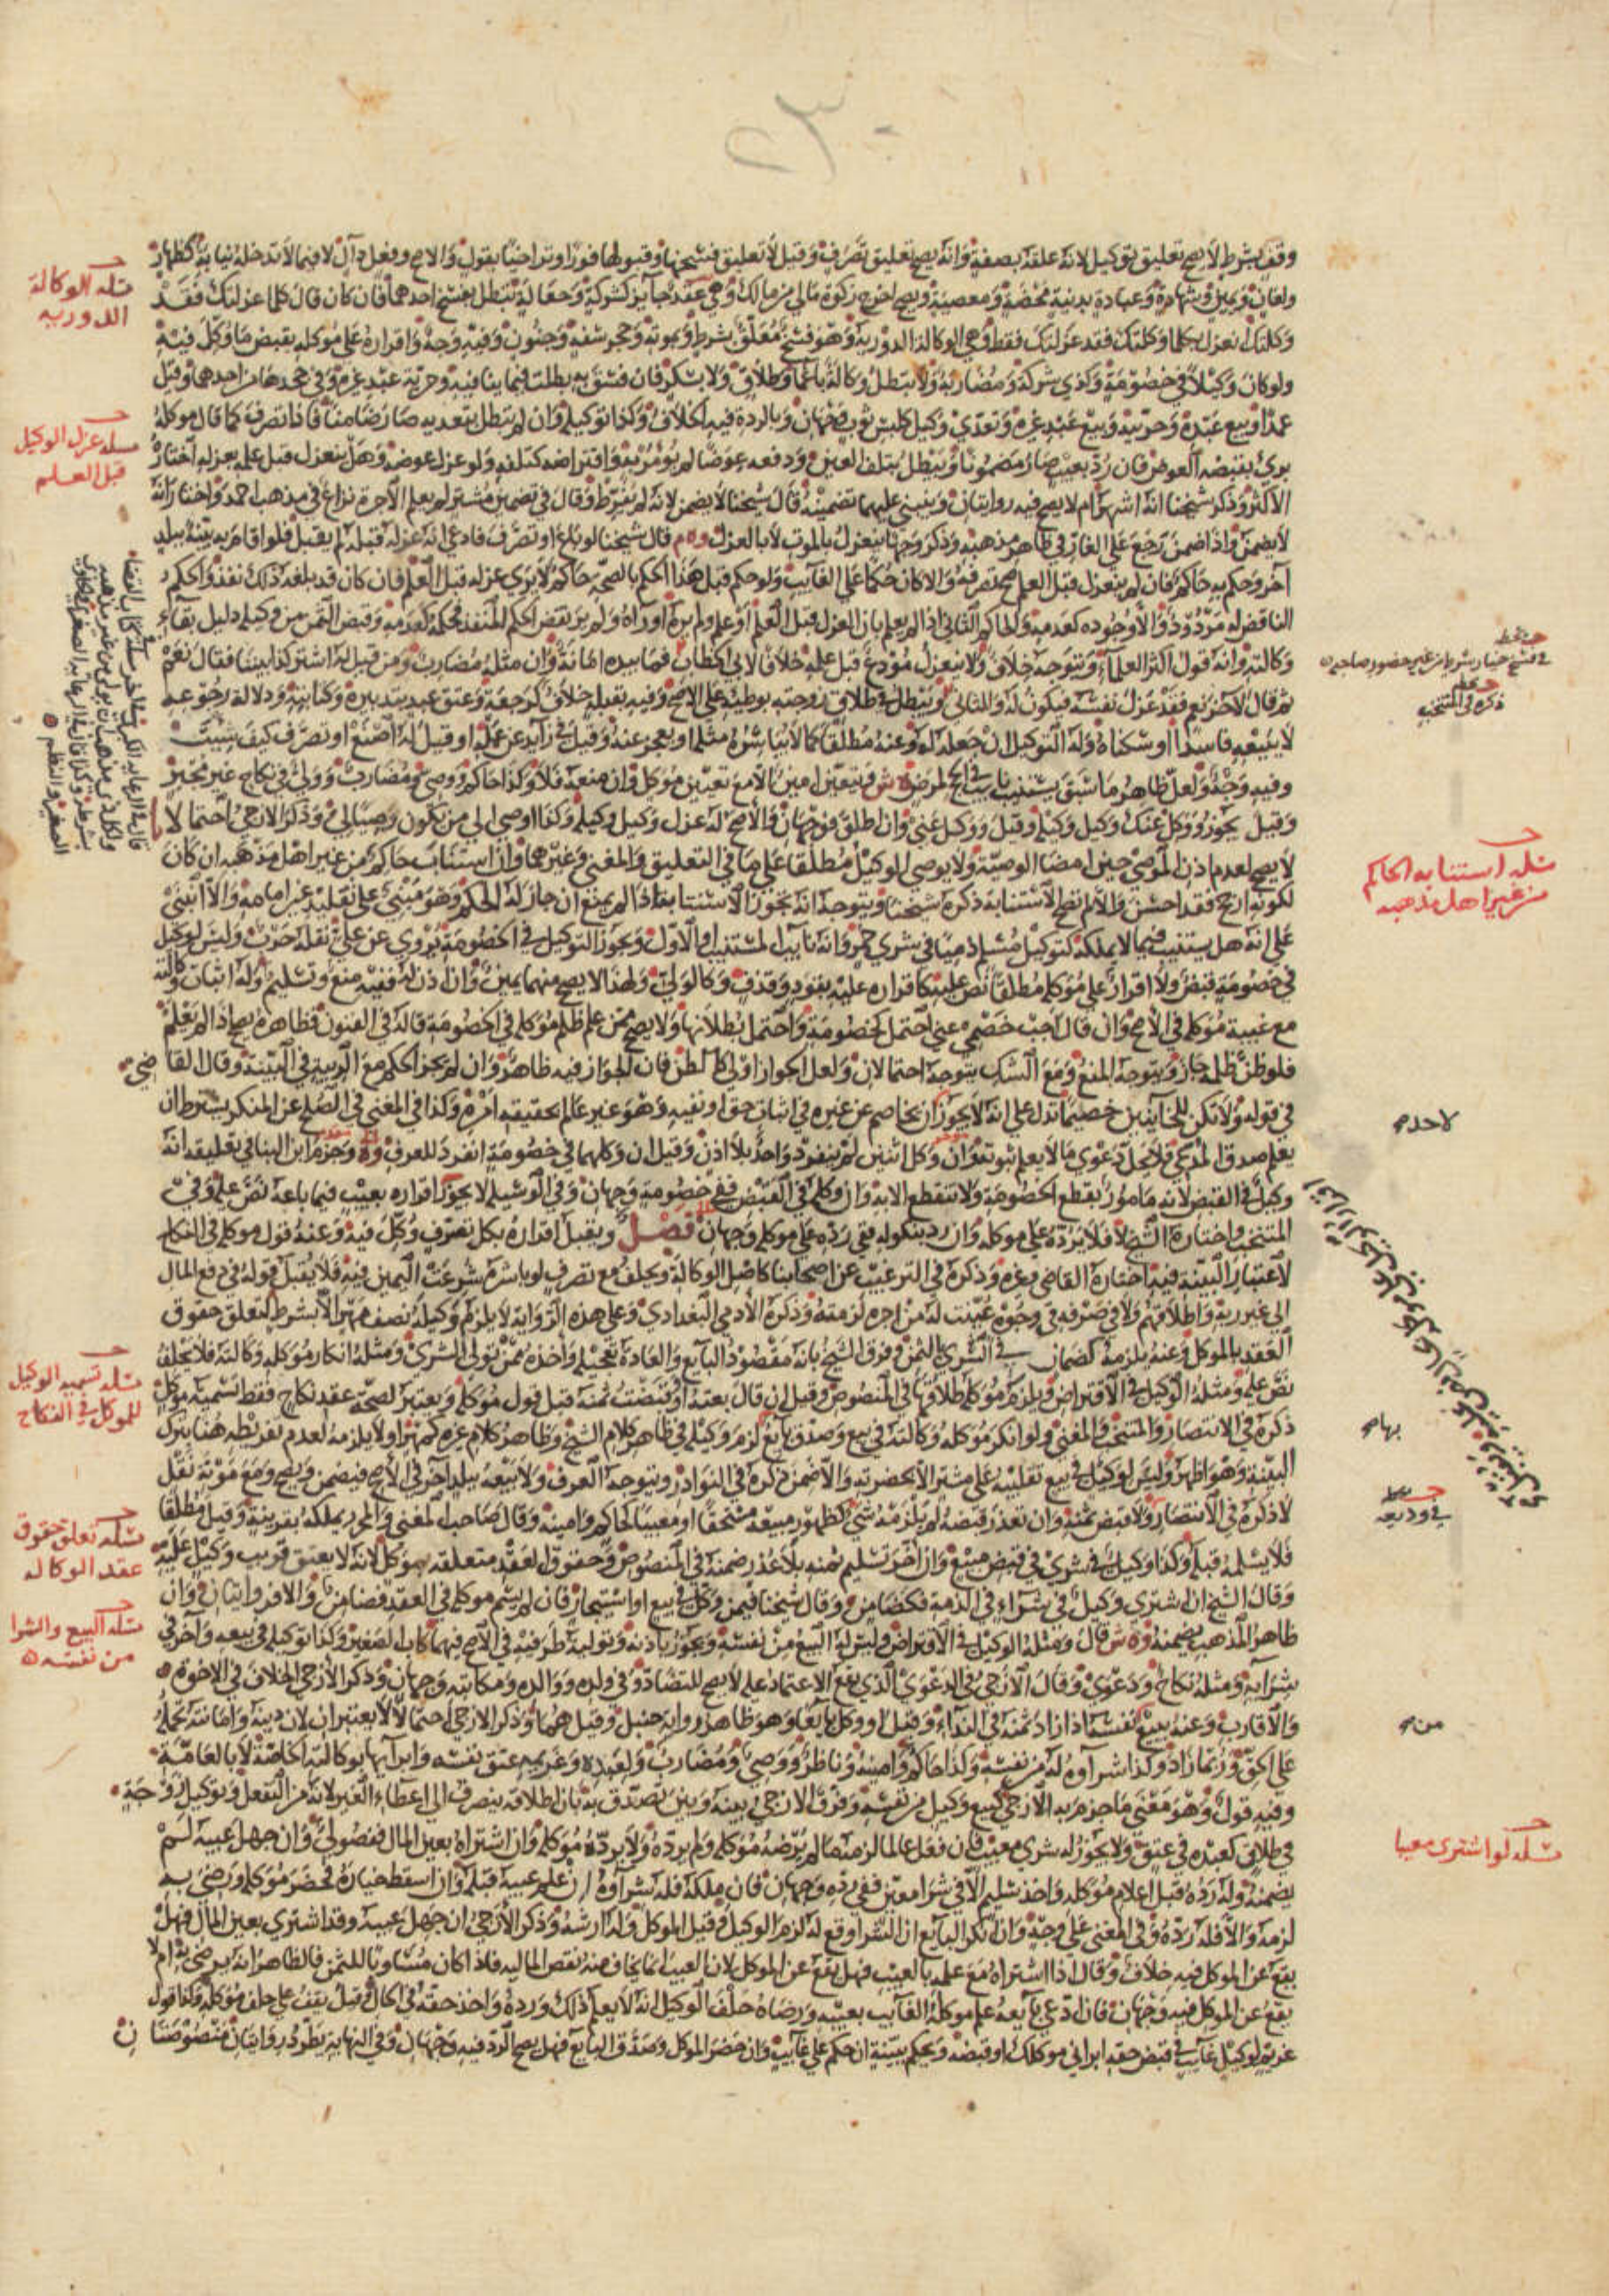 وقف بشرط لا يصح تعليق توكيل لانه علقه بصفة وانه يصح تعليق تصرف وقيل لا تعليق فسخها وقبولها فورا وتراخيا بقول والاصح وفعل دال لا فيما لا تدخله نيابة كظهار
ولعان ويمين وشهادة وعبادة بدنية محضة ومعصية ويصح اخرج زكوة مالي من مالك وهي عقد جايز كشركة وجعالة تبطل بفسخ احدهما فان كان قال كلما عزلتك فقد
وكلتك انعزل بكلما وكلتك فقد عزلتك فقط وهي الوكالة الدورية وهو فسخ معلق بشرط وبموته وحجر سفه وجنون وفيه وجه واقراره على موكله بقبض ما وكل فيه
ولو كان وكيلا في خصومة وكذي شركة ومضاربة ولا تبطل وكالة باغما وطلاق ولا بسكر فان فسق به بطلت فيما ينافيه وحرية عبد غيره وفي جحدها من احدهما وقيل
عمدا وبيع عبده وحريته وبيع عبد غيره وتعدي وكيل كلبس ثوب وجهان وبالردة فيه الخلاف وكذا توكيله وان لم يبطل بتعديه صار ضامنا فاذا تصرف كما قال موكله
بري بقبضه العوض فان رد بعيب صار مضمونا ويبطل بتلف العين ودفعه عوضا لم يؤمر به واقتراضه كتلفه ولو عزل عوضه وهل ينعزل قبل علمه بعزله اختاره
الاكثر وذكر شيخنا انه اشهر ام لا يصح فيه روايتان وينبني عليهما تضمينه قال شيخنا لا يضمن لانه لم يفرط وقال في تضمين مشتر لم يعلم الاجرة نزاع في مذهب احمد واختار انه
لا يضمن واذا ضمن رجع على الغار في ظاهر مذهبه وذكر وجها ينعزل بالموت لا بالعزل وه م قال شيخنا لو باع او تصرف فادعى انه عزله قبله لم يقبل فلو اقام به بينة ببلد
آخر وحكم به حاكم فان لم ينعزل قبل العلم صح تصرفه والا كان حكما على الغايب ولو حكم قبل هذا الحكم بالصحة حاكم لا يرى عزله قبل العلم فان كان قد بلغه ذلك نفذ والحكم
الناقض له مردود والا وجوده كعدمه والحاكم الثاني اذا لم يعلم بان العزل قبل العلم او علم ولم يره او رآه ولم ير نقض الحكم المنفذ فحكمه كعدمه وقبض الثمن من وكيله دليل بقاء
وكالته وانه قول اكثر العلماء ويتوجه خلاف ولا ينعزل مودع قبل علمه خلافا لابي الخطاب فما بيده امانة وان مثله مضارب ومن قيل له اشتر كذا بيننا فقال نعم
ثم قال لآخر نعم فقد عزل نفسه فيكون له وللثاني ويبطل في طلاق زوجته بوطئه على الاصح وفيه بقبلة خلاف كرجعة وعتق عبد بتدبيره وكتابته ودلالة رجوعه
لا ببيعه فاسدا او سكناه وله التوكيل ان جعله له وعنه مطلقا كما لا يباشره مثله او يعجز عنه وقيل في زايد عن عمله او قيل له اصنع او تصرف كيف شيت
وفيه وجه ولعل ظاهر ما سبق يستنيب نايب في الحج لمرض ه ش ويتعين امين الا مع تعيين موكل وان منعه فلا وكذا حاكم ووصي ومضارب وولي في نكاح غير مجبر
وقيل يجوز ووكل عنك وكيل وكيله وقيل ووكل عني وان اطلق فوجهان والاصح له عزل وكيل وكيله وكذا اوصي الى من يكون وصيا لي وذكر الازجي احتمالا
لا يصح لعدم اذن الموصي حين امضا الوصية ولا يوصي الوكيل مطلقا على ما في التعليق والمغني وغيرهما وان استناب حاكم من غير اهل مذهبه ان كان
لكونه ارجح فقد احسن والا لم تصح الاستنابة ذكره شيخنا ويتوجه انه تجوز الاستنابة اذا لم يمنع ان جاز له الحكم وهو مبني على تقليد غير امامه والا انبنى
على انه هل يستنيب فيما لا يملكه كتوكيل مسلم ذميا في شرى خمر وانه نايب المستنيب او الاول ويجوز التوكيل في الخصومة يروي عن علي نقله حرب وليس لوكيل
في خصومة قبض ولا اقرار على موكله مطلقا نص عليه كاقراره عليه بقود وقذف وكالولي ولهذا لا يصح منهما يمين وان اذن له ففيه منع وتسليم وله اثبات وكالته
مع غيبة موكله في الاصح وان قال اجب خصمي عني احتمل كخصومة واحتمل بطلانها ولا يصح ممن علم ظلم موكله في الخصومة قاله في الفنون فظاهره يصح اذا لم يعلم
فلو ظن ظلمه جاز ويتوجه المنع ومع الشك يتوجه احتمالان ولعل الجواز اولى كالظن فان الجواز فيه ظاهر وان لم يجز الحكم مع الريبة في البينة وقال القاضي
في قوله ولا تكن للخاينين خصيما تدل على انه لا يجوز ان يخاصم عن غيره في اثبات حق او نفيه وهو غير عالم بحقيقه امره وكذا في المغني في الصلح عن المنكر يشترط ان
يعلم صدق المدعي فلا يحل دعوى ما لا يعلم ثبوته وان وكل اثنين لم ينفرد واحد بلا اذن وقيل ان وكلهما في خصومة انفرد للعرف وه وجزم ابن البنا في تعليقه انه
وكيل في القبض لانه مامور بقطع الخصومة ولا تنقطع الا به وان وكله في القبض ففي خصومة وجهان وفي الوسيلة لا يجوز اقراره بعيب فيما باعه نص عليه وفي
المنتخب واختاره الشيخ لا فلا يرده على موكله وان رد بنكوله ففي رده على موكله وجهان فصل ويقبل اقراره بكل تصرف وكل فيه وعنه قول موكله في النكاح
لاعتبار البينة فيه اختاره القاضي وغيره وذكره في الترغيب عن اصحابنا كاصل الوكالة ويحلف مع تصرف لو باشره شرعت اليمين فيه فلا يقبل قوله في دفع المال
الى غير ربه واطلاقهم ولا في صرفه في وجوه عينت له من اجره لزمته وذكره الآدمي البغدادي وعلى هذه الرواية لا يلزم وكيله نصف مهر الا بشرط لتعلق حقوق
العقد بالموكل وعنه يلزمه كضمان في الشرى بالثمن وفرق الشيخ بانه مقصود البايع والعادة تعجيله واخذه ممن تولى الشرى ومثله انكار موكله وكالته فلا يحلف
نص عليه ومثله الوكيل في الاقتراض ويلزم موكله طلاقها في المنصوص وقيل ان قال بعته او قبضت ثمنه قبل قول موكله ويعتبر لصحة عقد نكاح فقط تسميه موكل
ذكره في الانتصار والمنتخب والمغني ولو انكر موكله وكالته في بيع وصدق بايع لزم وكيله في ظاهر كلام الشيخ وظاهر كلام غيره كمهر او لا يلزمه لعدم تفريطه هنا بترك
البينة وهو اظهر وليس لوكيل في بيع تقليبه على مشتر الا بحضرته والا ضمن ذكره في النوادر ويتوجه العرف ولا بيعه ببلد آخر في الاصح فيضمن ويصح ومع مؤنة نقل
لا ذكره في الانتصار ولا قبض ثمنه وان تعذر قبضه لم يلزمه شي كظهور مبيعه مستحقا او معيبا كحاكم وامينه وقال صاحب المغني والمحرر يملكه بقرينة وقيل مطلقا
فلا يسلمه قبله وكذا وكيل في شرى في قبض مبيع وان اخر تسليم ثمنه بلا عذر ضمنه في المنصوص وحقوق العقد متعلقه بموكل لانه لا يعتق قريب وكيل عليه
وقال الشيخ ان اشترى وكيل في شراء في الذمة فكضامن وقال شيخنا فيمن وكل في بيع او استيجار فان لم يسم موكله في العقد فضامن والا فروايتان وان
ظاهر المذهب يضمنه وه ش قال ومثله الوكيل في الاقتراض وليس له البيع من نفسه ويجوز باذنه وتوليه طرفيه في الاصح فيهما كاب الصغير وكذا توكيله في بيعه وآخر في
شرايه ومثله نكاح ودعوى وقال الازجي في الدعوى الذي يقع الاعتماد عليه لا يصح للتضاد وفي ولده ووالده ومكاتبه وجهان وذكر الازجي الخلاف في الاخوة
والاقارب وعنه يبيع نفسه اذا زاد ثمنه في النداء وقيل او وكل بايعا وهو ظاهر رواية حنبل وقيل هما وذكر الازجي احتمالا لا يعتبران لان دينه وامانته تحمله
على الحق وربما زاد وكذا شراوه له من نفسه وكذا حاكم وامينه وناظر ووصي ومضارب ولعبده وغريمه عتق نفسه وابرآيها بوكالته الخاصة لا بالعامة
وفيه قول وهو معنى ما جزم به الازجي كبيع وكيل من نفسه وفرق الازجي بينه وبين تصدق به بان اطلاقه ينصرف الى اعطاء الغير لانه من التفعل وتوكيل زوجة
في طلاق كعبده في عتق ولا يجوز له شرى معيب فان فعل عالما لزمه ما لم يرضه موكله ولم يرده ولا يرده موكله وان اشتراه بعين المال ففضولي وان جهل عيبه لم
يضمنه وله رده قبل اعلام موكله واخذ سليم الا في شرا معين ففي رده وجهان فان ملكه فله شراوه ان علم عيبه قبله وان اسقط خياره فحضر موكله ورضي به
لزمه والا فله رده وفي المغني على وجه وان انكر البايع ان الشرا وقع له لزم الوكيل وقيل الموكل وله ارشه وذكر الازجي ان جهل عيبه وقد اشتري بعين المال فهل
يقع عن الموكل فيه خلاف وقال اذا اشتراه مع علمه بالعيب فهل يقع عن الموكل لان العيب انما يخاف منه نقص الماليه فاذا كان مساويا للثمن فالظاهر انه يرضى به ام لا
يقع عن الموكل فيه وجهان فان ادعى بايعه علم موكله الغايب بعيبه ورضاه حلف الوكيل انه لا يعلم ذلك ورده واخذ حقه في الحال وقيل يقف على حلف موكله وكذا قول
غريم لوكيل غايب في قبض حقه ابراني موكلك او قبضه ويحكم ببينة ان حكم على غايب وان حضر الموكل وصدق البايع فهل يصح الرد فيه وجهان وفي النهاية يطرد روايتان منصوصتان
مسله الوكالة
الدوريه
مسله عزل الوكيل
قبل العلم
في فسخ خيار شرط من غير حضور صاحبه
ذكره في المنتخب
مسله استنابه الحاكم
من غير اهل مذهبه
لاحدهم
مسله تسميه الوكيل
للموكل في النكاح
بهام
في وديعه
مسله تعلق حقوق
عقد الوكاله
مسله البيع والشرا
من نفسه
من
مسله لو اشترى معيبا